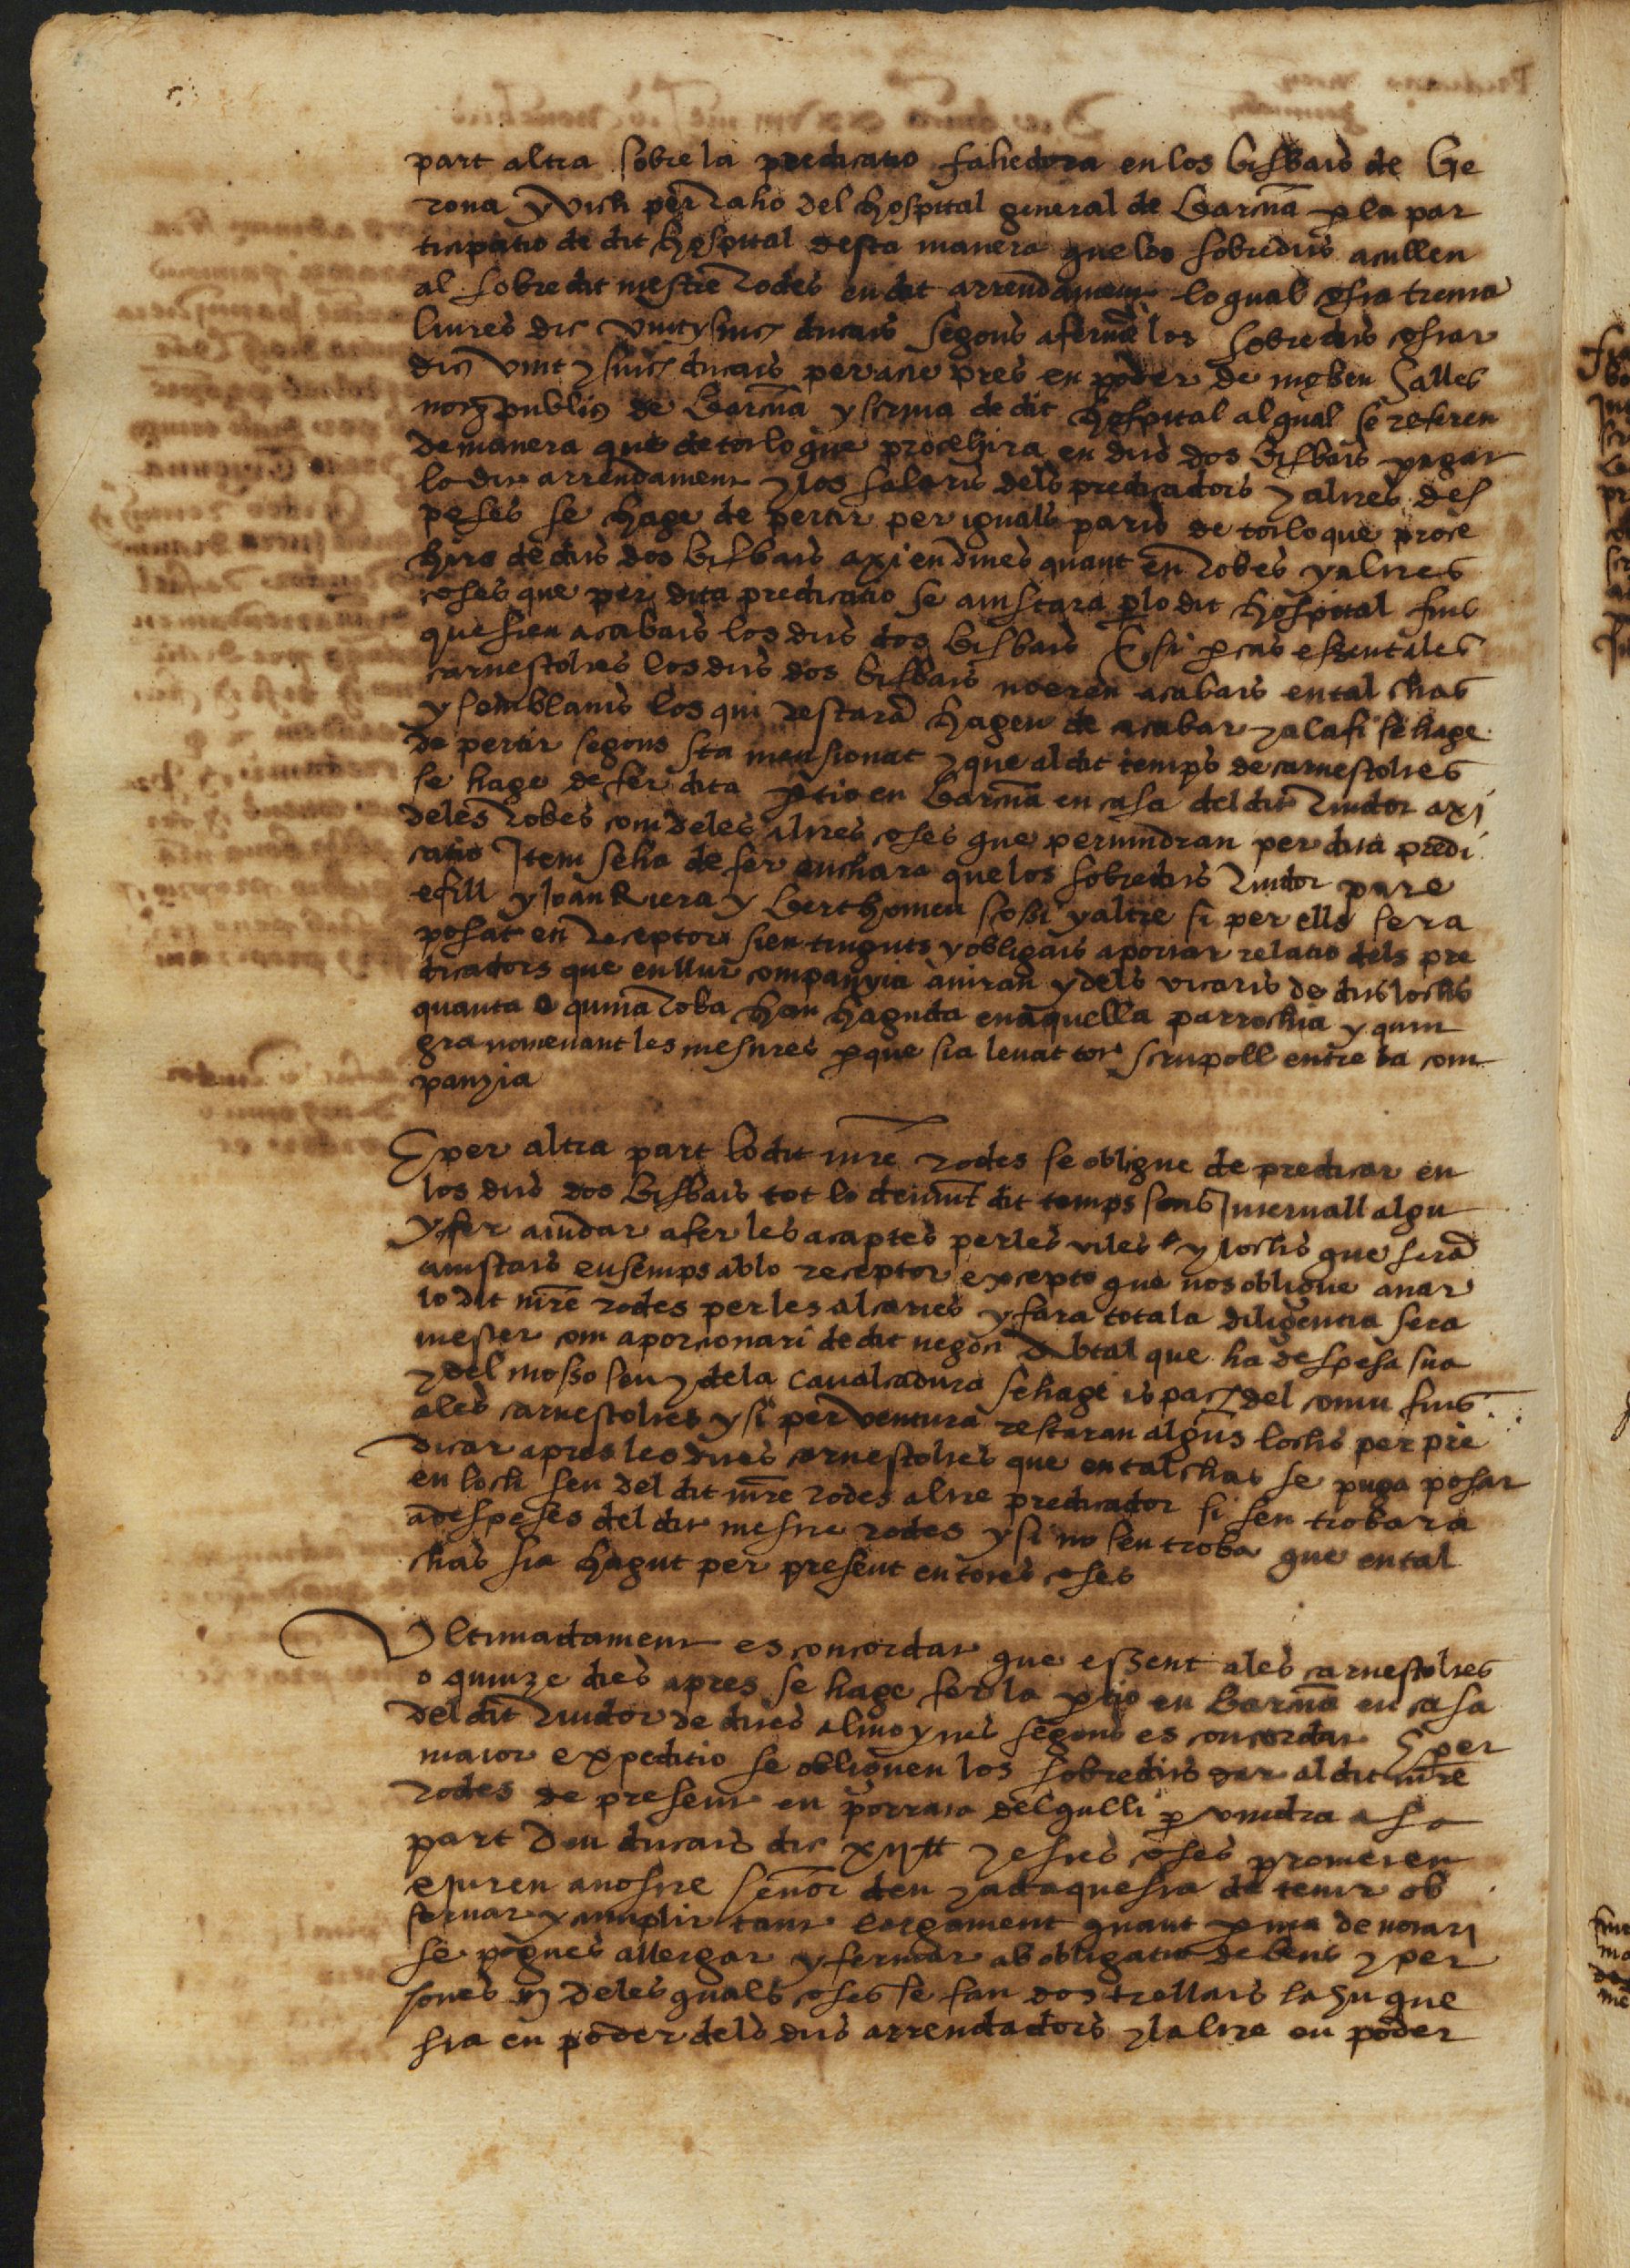 part altra sobre la predicatio fahedora en los bisbats de Ge
rona y vich per raho del hospital general de Barcña y la par
ticipatio de dit hospital desta manera que los sobredits acullen
al sobredit mestre rodes en dit arrendament lo qual costa trenta
liures dic vint y sinc ducats segons afermẽ los sobredits costar
dic vint y sinc ducats per acte pres en poder de m° ben salles
not publich de Barcña y scriua de dit hospital al qual se referen
de manera que de tot lo que procehira en dits dos bisbats pagat
lo dit arrendament y los salaris dels predicadors y altres des
peses se hage de pertir per iguals parts de tot lo que proce
hira de dits dos bisbats axi en diners quant en robes y altres
coses que per dita predicatio se aiustara p lo dit hospital fins
que sien acabats los dits dos bisbats E si p cas essent a les
carnestoltes los dits dos bisbats no eren acabats en tal chas
y semblants los qui restarã hagen de acabar y a la fi se hage
de pertir segons sta mensionat y que al dit temps de carnestoltes
se hage de fer dita ptio en Barcña en casa del dit Tudor axi
de les robes com de les altres coses que peruindran per dita predi
catio Item se ha de fer enchara que los sobredits Tudor pare
e fill y Joan Riera y Berthomeu sossi y altre si per ells sera
posat en receptor sien tinguts y obligats aportar relatio dels pre
dicadors que en llur companyia aniran y dels vicaris de dits lochs
quanta e quina roba han haguda en aquella parrochia y quin
gra nomenant les mesures p que sia leuat tot scrupoll entre la com
panyia
E per altra part lo dit mre rodes se obligue de predicar en
los dits dos bisbats tot lo demunt dit temps sens Interuall algu
y fer aiudar a fer les acaptes per les viles y lochs que serã
aiustats ensemps ab lo receptor excepto que nos obligue anar
lo dit mre rodes per les alcaries y fara tota la diligentia sera
mester com a portionari de dit negoci Ab tal que ha despesa sua
y del mosso seu y de la caualcadura se hage is pac del comu fins
a les carnestoltes y si per ventura restaran alguns lochs per pre
dicar apres les dites carnestoltes que en tal chas se puga posar
en loch seu del dit mre rodes altre predicador si sen trobara
a despeses del dit mestre rodes y si no sen troba que en tal
chas sia hagut per present en totes coses
Ultimadament es concordat que essent a les carnestoltes
o quinze dies apres se hage fer la ptio en Barcña en casa
del dit Tudor de dites almoynes segons es concordat E per
maior expeditio se obliguen los sobredits dar al dit mre
rodes de present en porrata del qulli p vindra a sa
part deu ducats dic xii ll y estes coses prometen
e juren a nostre señor deu y ad aquesta de tenir ob
seruar y cumplir tant largament quant p ma de notari
se pogues allergar y fermar ab obligatio de bens y per
sones y de les quals coses se fan dos trellats la hu que
sta en poder dels dits arrendadors y laltre en poder